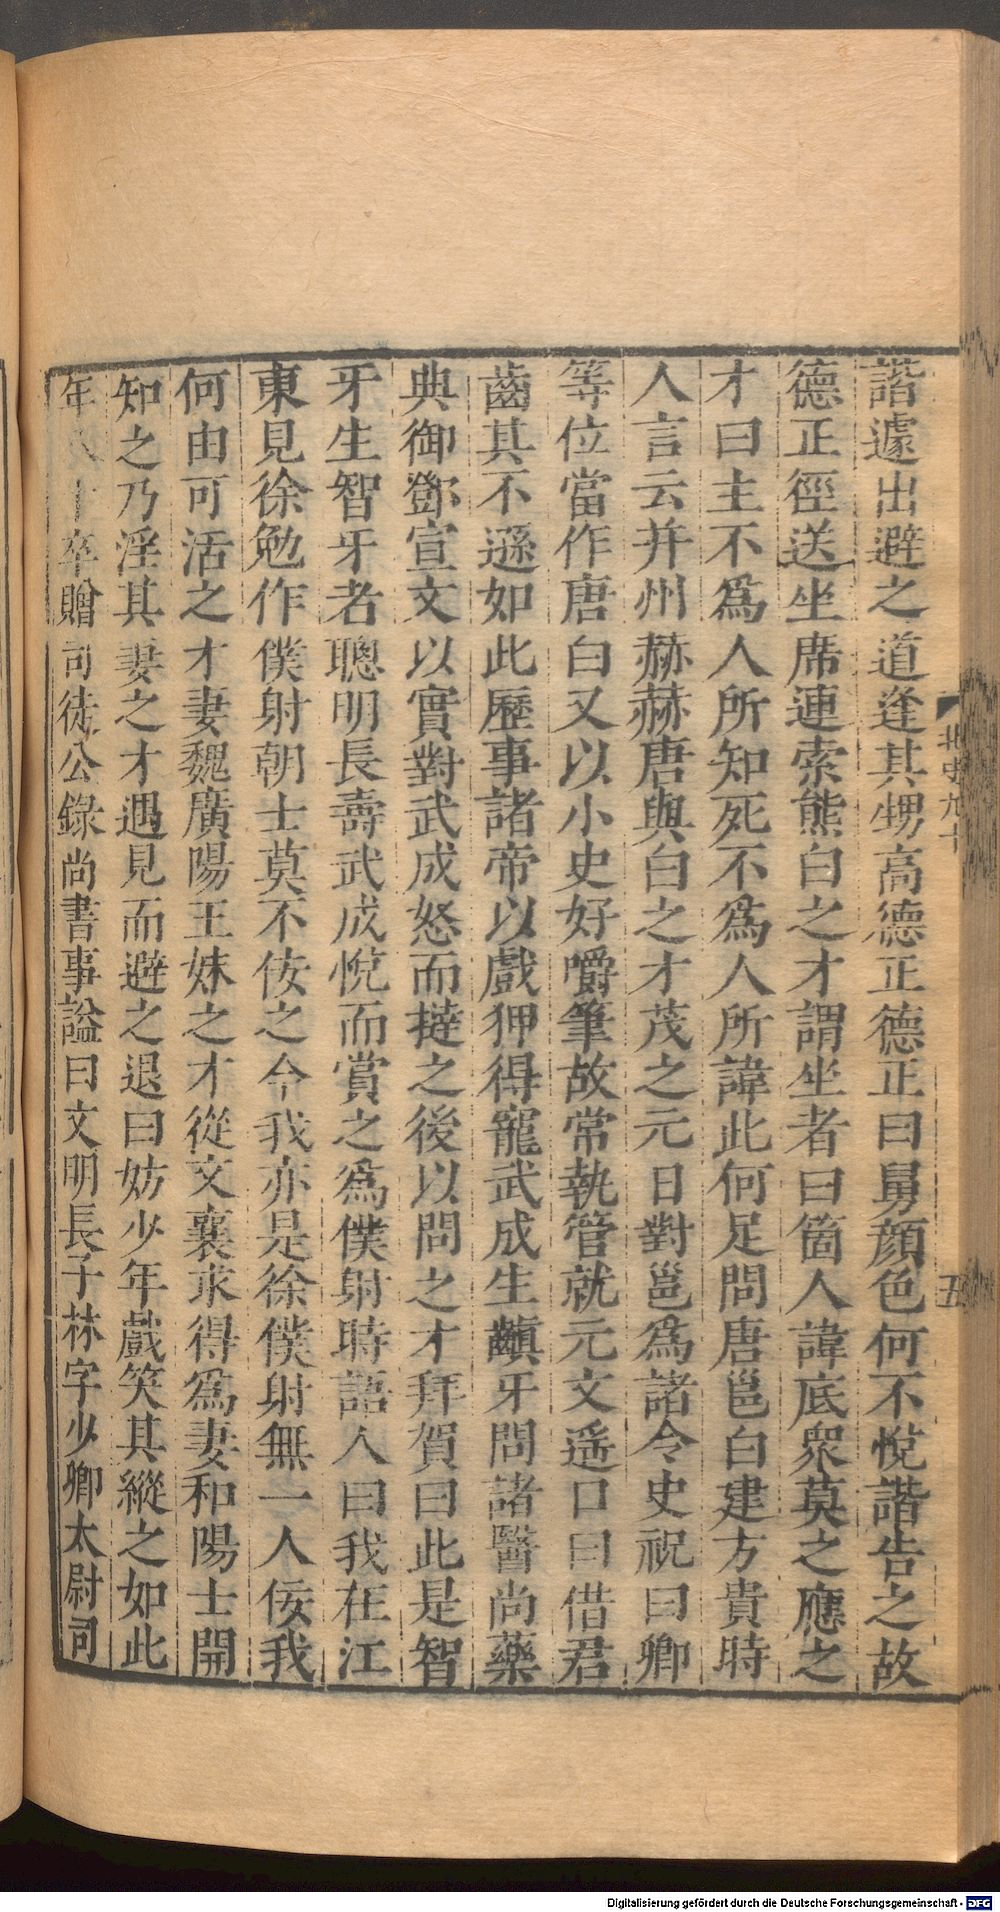 諧遽出避之道逢其甥高德正德正曰舅顔色何不悅諧告之故
德正徑送坐席連索熊白之才謂坐者曰箇人諱底衆莫之應之
才曰主不爲人所知死不爲人所諱此何足問唐邕白建方貴時
人言云并州赫赫唐與白之才茂之元日對邕爲諸令史祝曰卿
等位當作唐白又以小史好嚼筆故常執管就元文遥口曰借君
齒其不遜如此歷事諸帝以戲狎得寵武成生齻牙問諸醫尚藥
典御鄧宣文以實對武成怒而撻之後以問之才拜賀曰此是智
牙生智牙者聰明長壽武成悅而賞之爲僕射時語人曰我在江
東見徐勉作僕射朝士莫不佞之今我亦是徐僕射無一人佞我
何由可活之才妻魏廣陽王妹之才從文襄求得爲妻和陽士開
知之乃淫其妻之才遇見而避之退曰妨少年戲笑其縱之如此
年八十卒贈司徒公錄尚書事謚曰文明長子林字少卿太尉司
北史九十
五
Digitalisierung gefördert durch die Deutsche Forschungsgemeinschaft - DFG